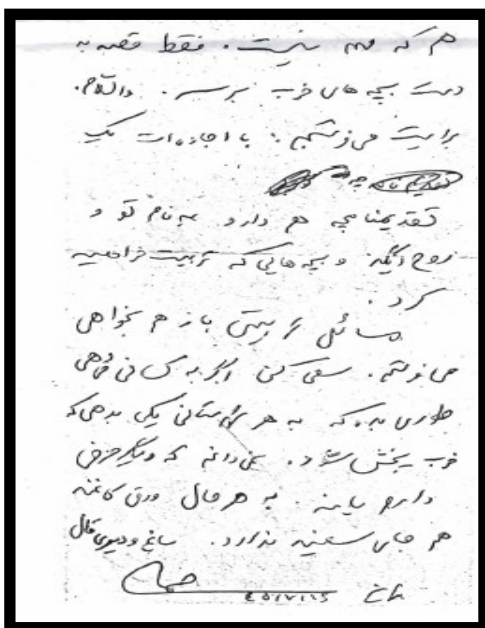 هم که مهم نیست. فقط قصه به
دست بچه های خوب برسد. والسلام.
برایت می فرستم. با اجازه ات یک
تقدیمنامچه هم دارد به نام تو و
روح انگیز و بچه هایی که تربیت خواهید
کرد.
مسائل تربیتی باز هم بخواهی
می فرستم. سعی کن اگر به کسانی می دهی
طوری بده که به هر استانی یکی بدهی که
خوب پخش شود. نمی دانم که دیگر حرفی
دارم یا نه. به هر حال ورق کاغذ
هم جای سفید ندارد.